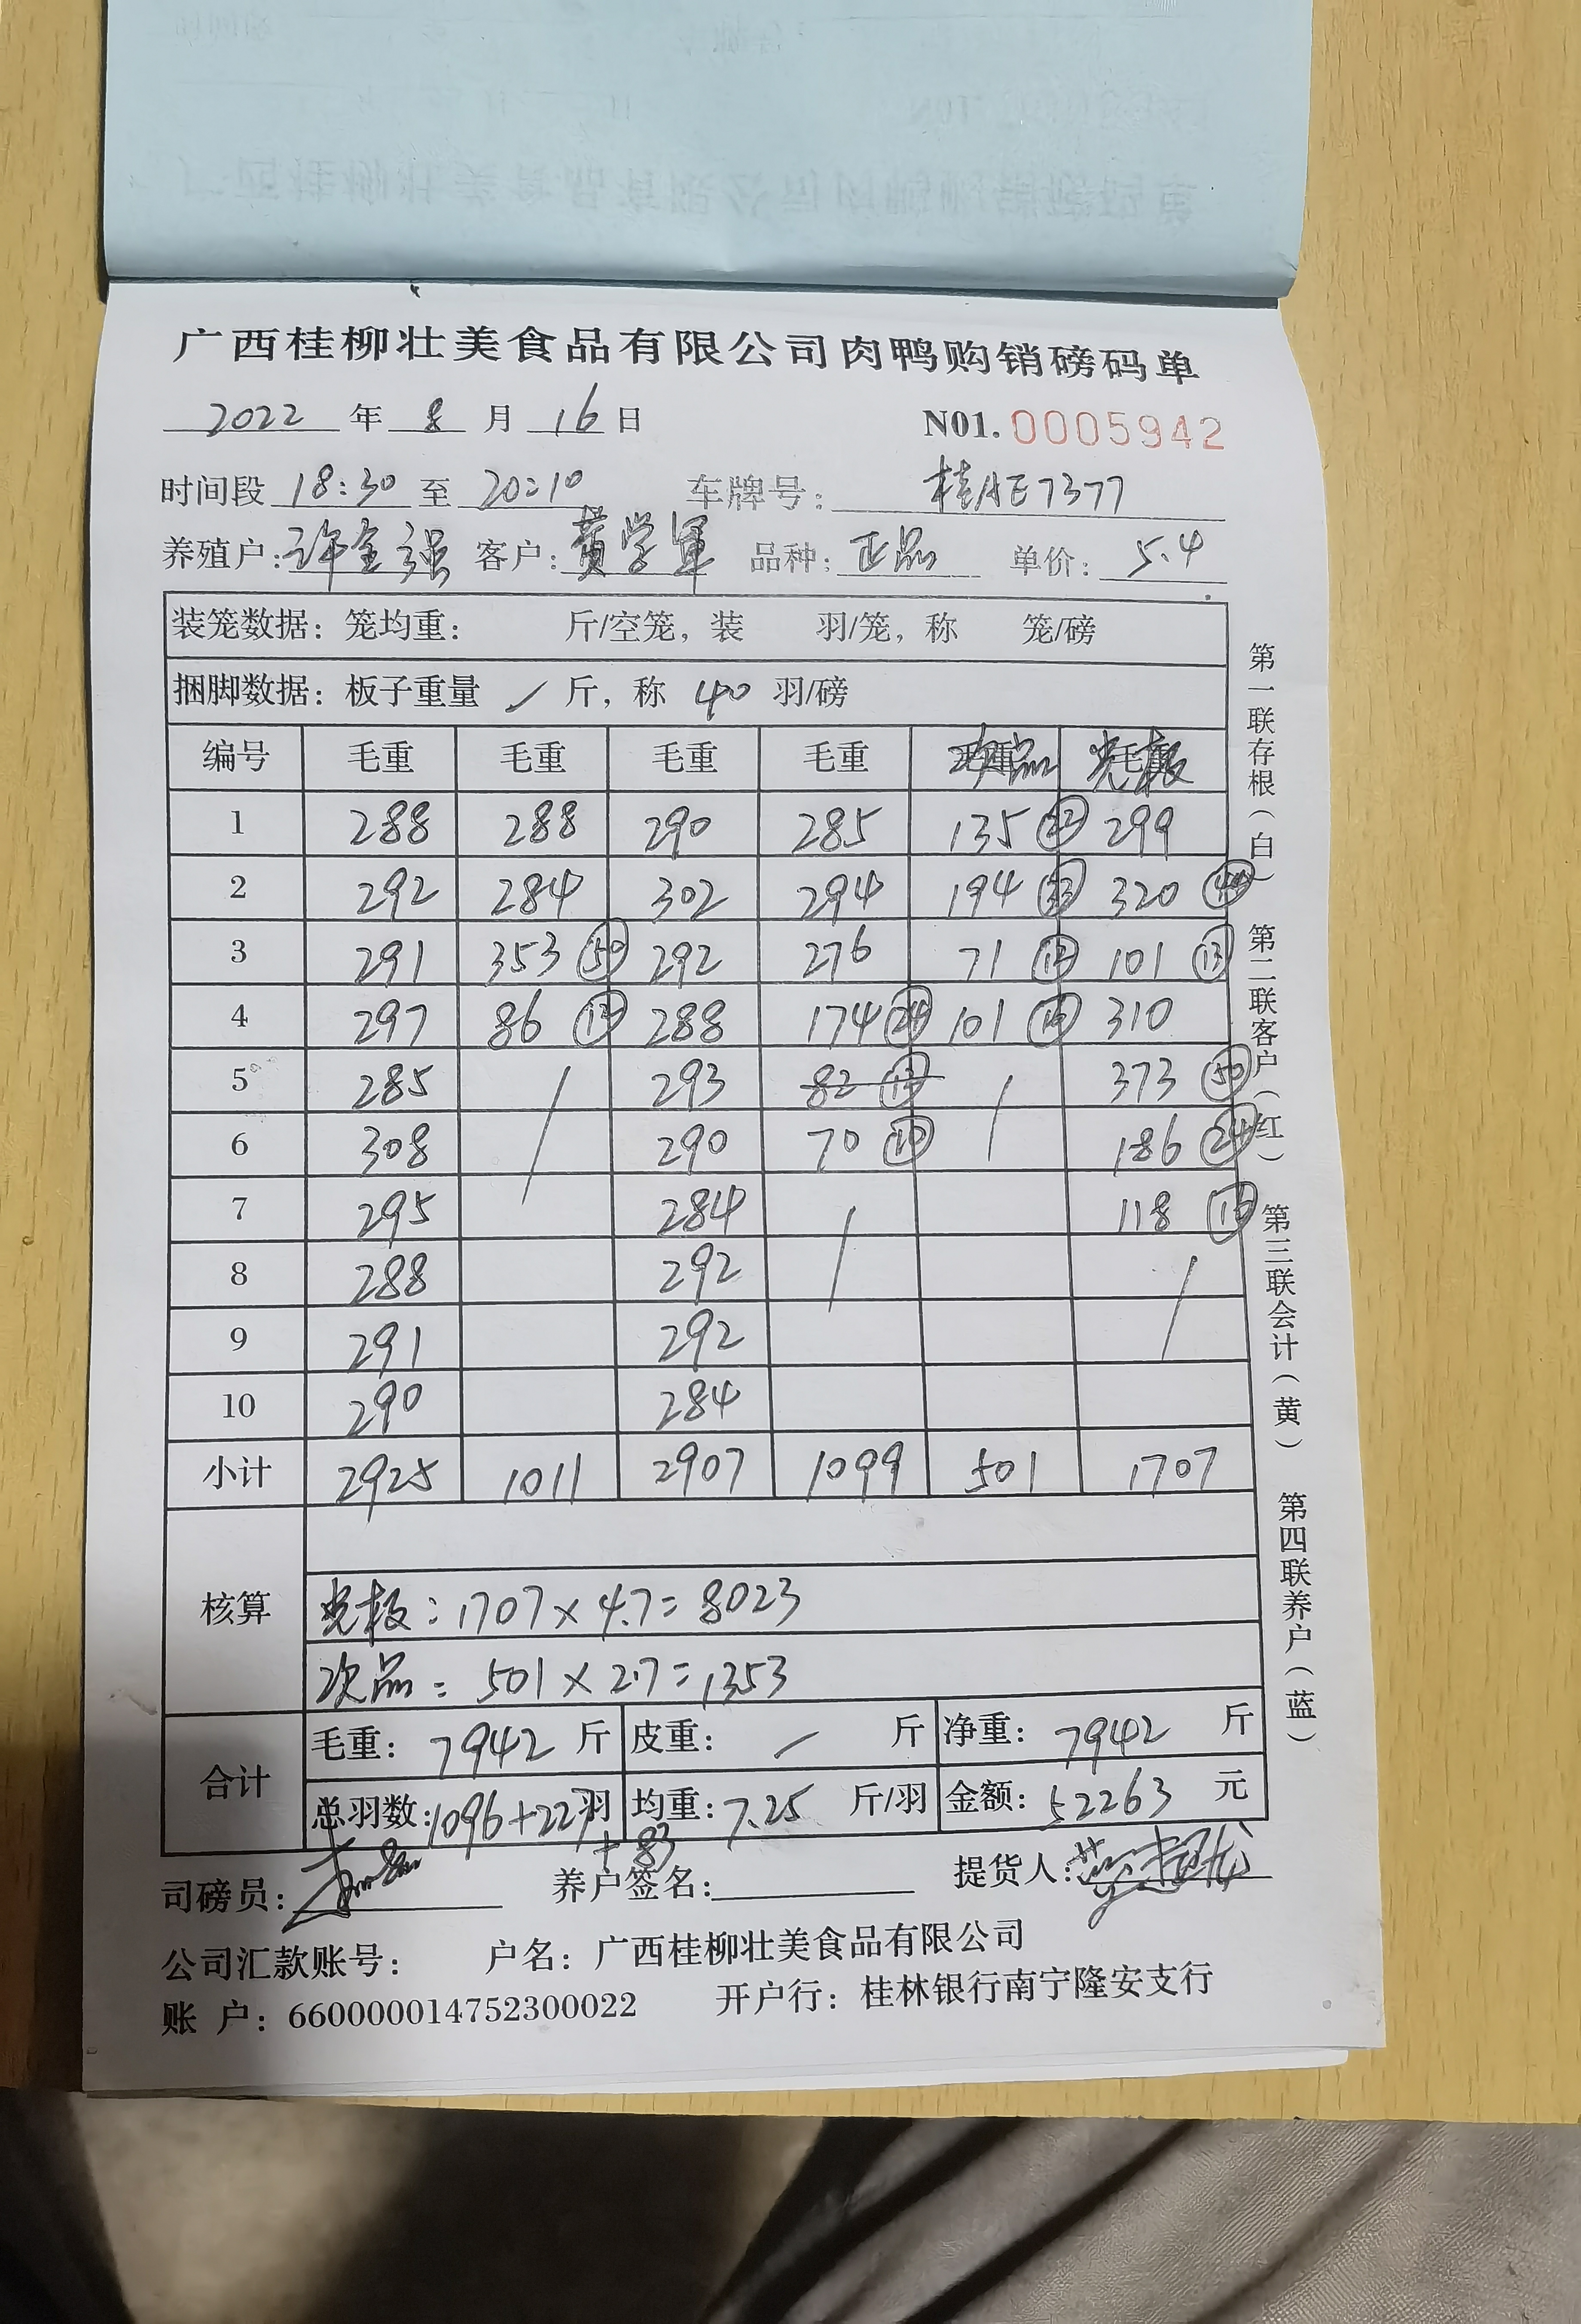 广西桂柳壮美食品有限公司肉鸭购销磅码单
2022 年 8 月 16 日 N01. 0005942
时间段 18:30 至 20:10 车牌号: 桂AE7377
养殖户: 许金强 客户: 黄学军 品种: 正品 单价: 5.4
装笼数据: 笼均重: 斤/空笼, 装 羽/笼, 称 笼/磅
捆脚数据: 板子重量 / 斤, 称 40 羽/磅
编号 毛重 毛重 毛重 毛重 次品 光板
1 288 288 290 285 135 299
2 292 284 302 294 194 320
3 291 353 50 292 276 71 101 13
4 297 86 288 174 24 101 310
5 285 / 293 82 / 373 50
6 308 290 70 10 186 24
7 295 284 / 118
8 288 292 /
9 291 292
10 290 284
小计 2925 1011 2907 1099 501 1707
核算
光板: 1707 × 4.7 = 8023
次品: 501 × 2.7 = 1353
合计
毛重: 7942 斤 皮重: / 斤 净重: 7942 斤
总羽数: 1096+227 羽 均重: 7.25 斤/羽 金额: 52263 元
+83
司磅员: 养户签名: 提货人:
公司汇款账号: 户名: 广西桂柳壮美食品有限公司
账 户: 660000014752300022 开户行: 桂林银行南宁隆安支行
第一联存根(白) 第二联客户(红) 第三联会计(黄) 第四联养户(蓝)